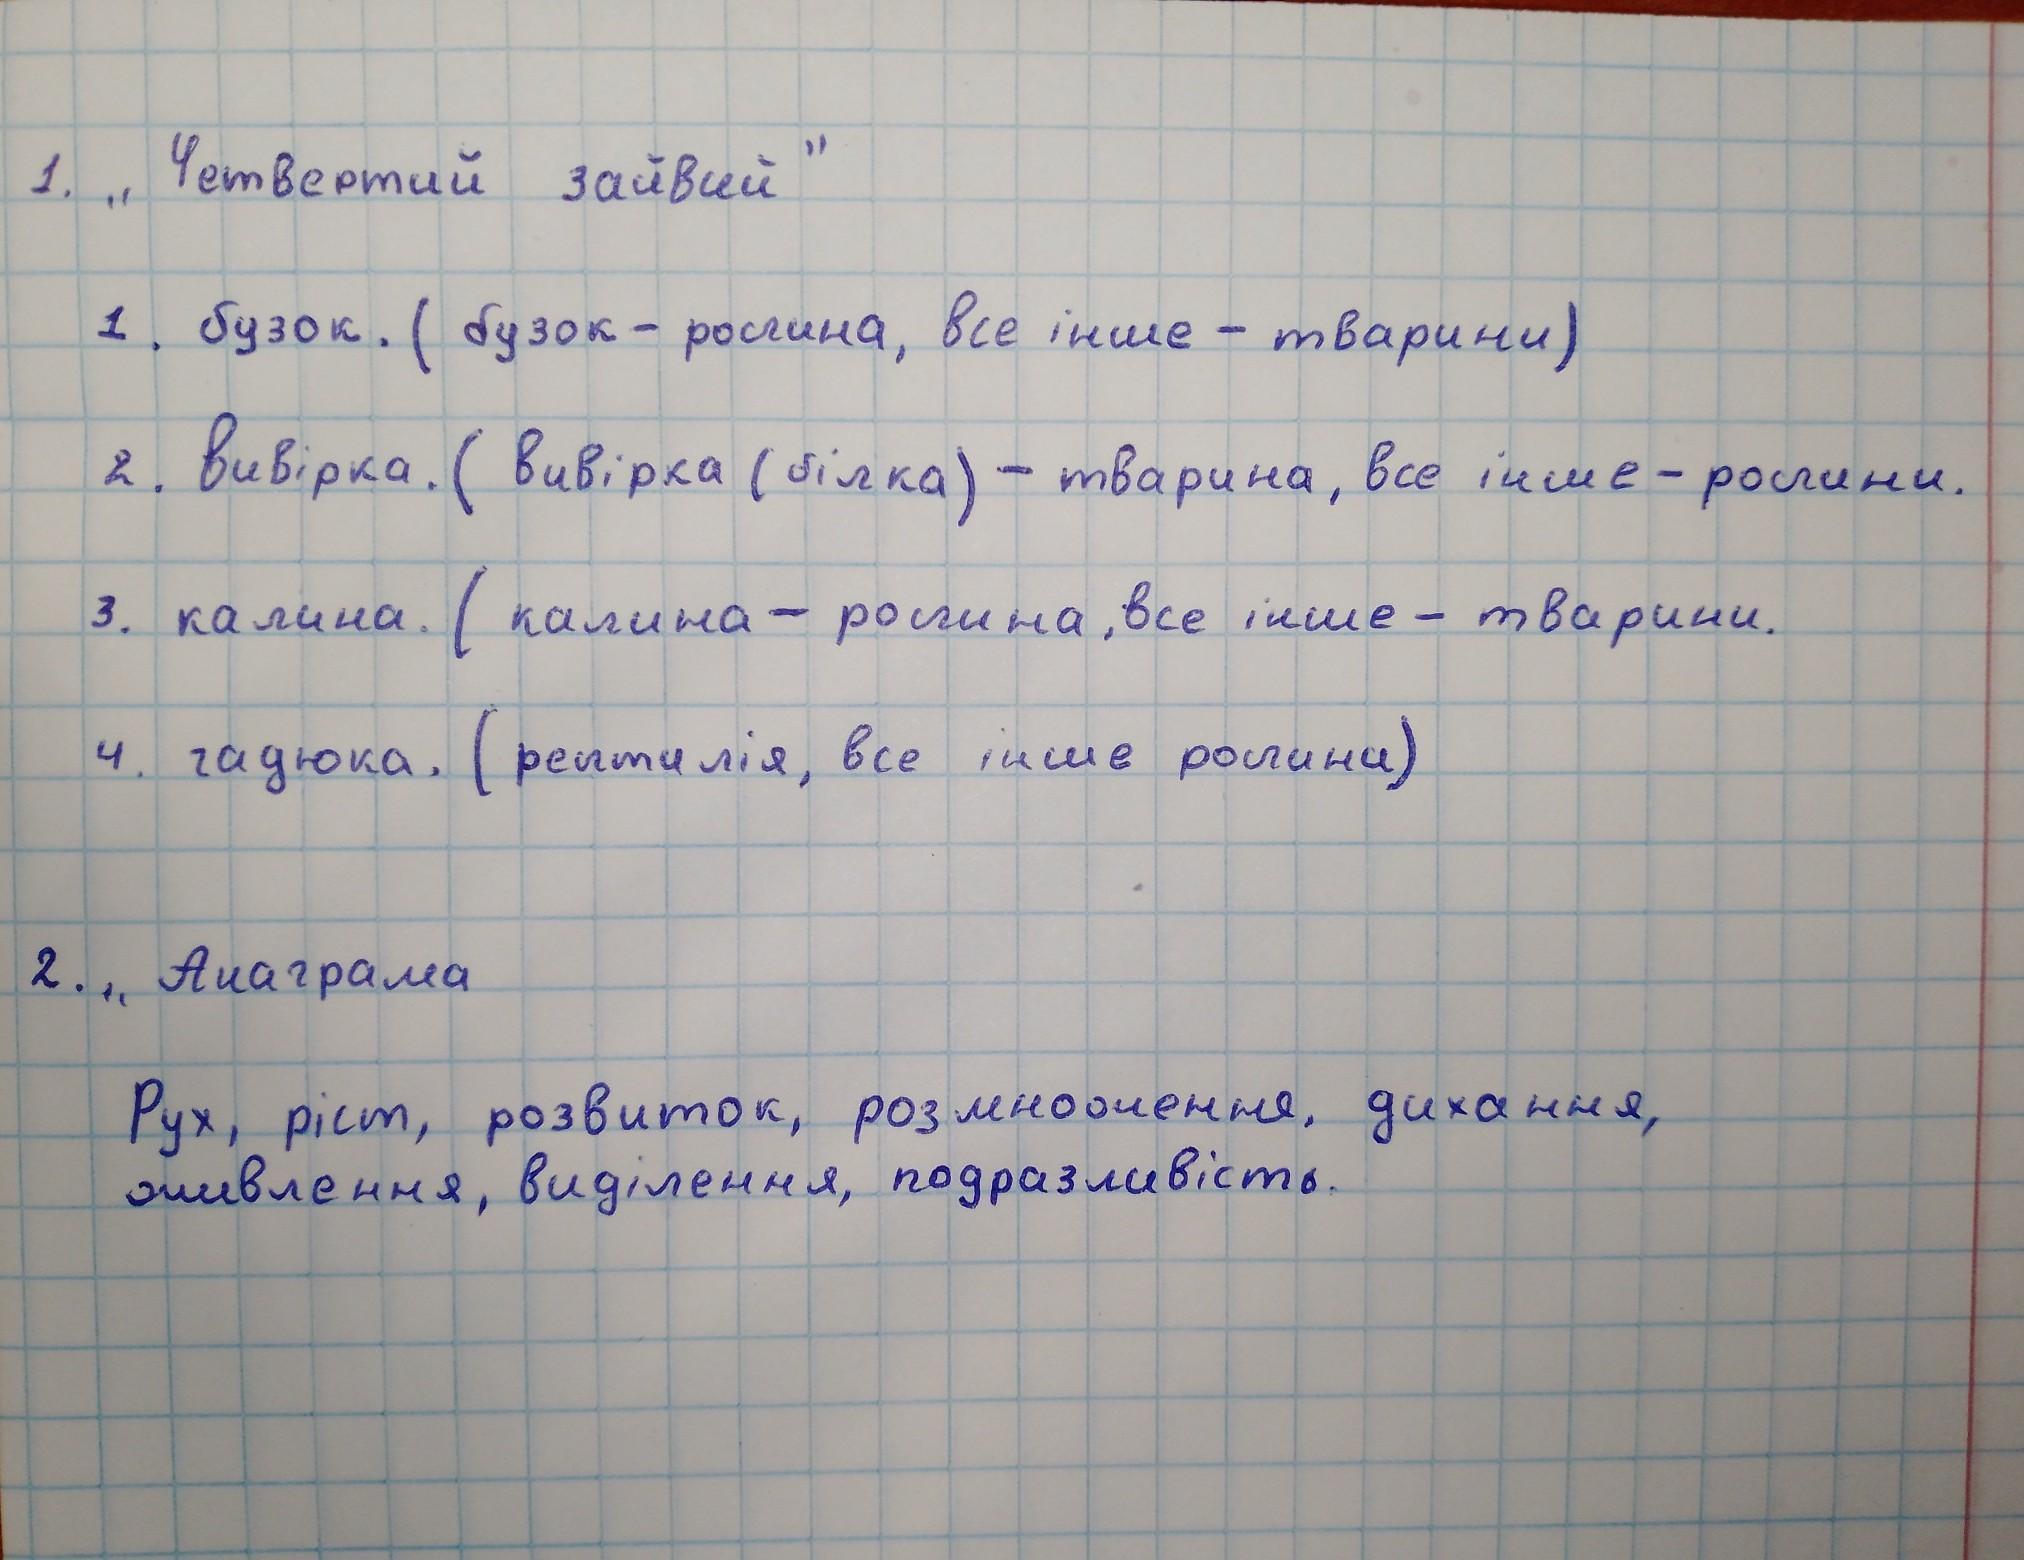 1. „Четвертий зайвий”
1. бузок. ( бузок – рослина, все інше – тварини)
2. вивірка. ( вивірка (білка) – тварина, все інше – рослини.
3. калина. ( калина – рослина, все інше – тварини.
4. гадюка. ( рептилія, все інше рослини)
2. „ Анаграма
Рух, ріст, розвиток, розмноження, дихання,
живлення, виділення, подразливість.